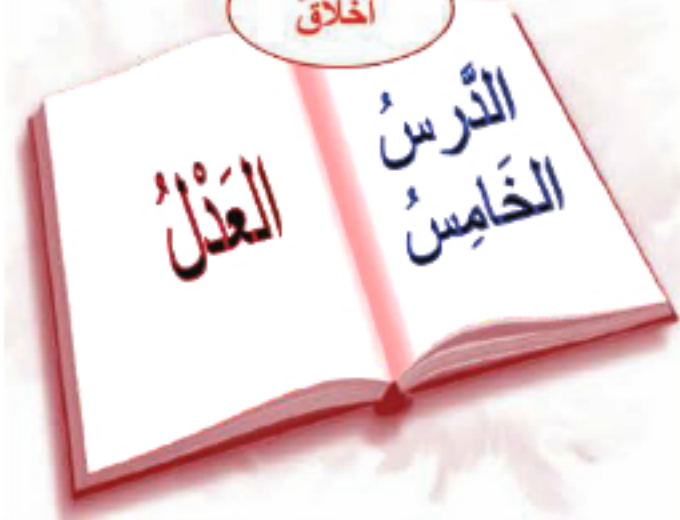 أخلاق
الدَّرسُ
الخَامِسُ
العَدْلُ